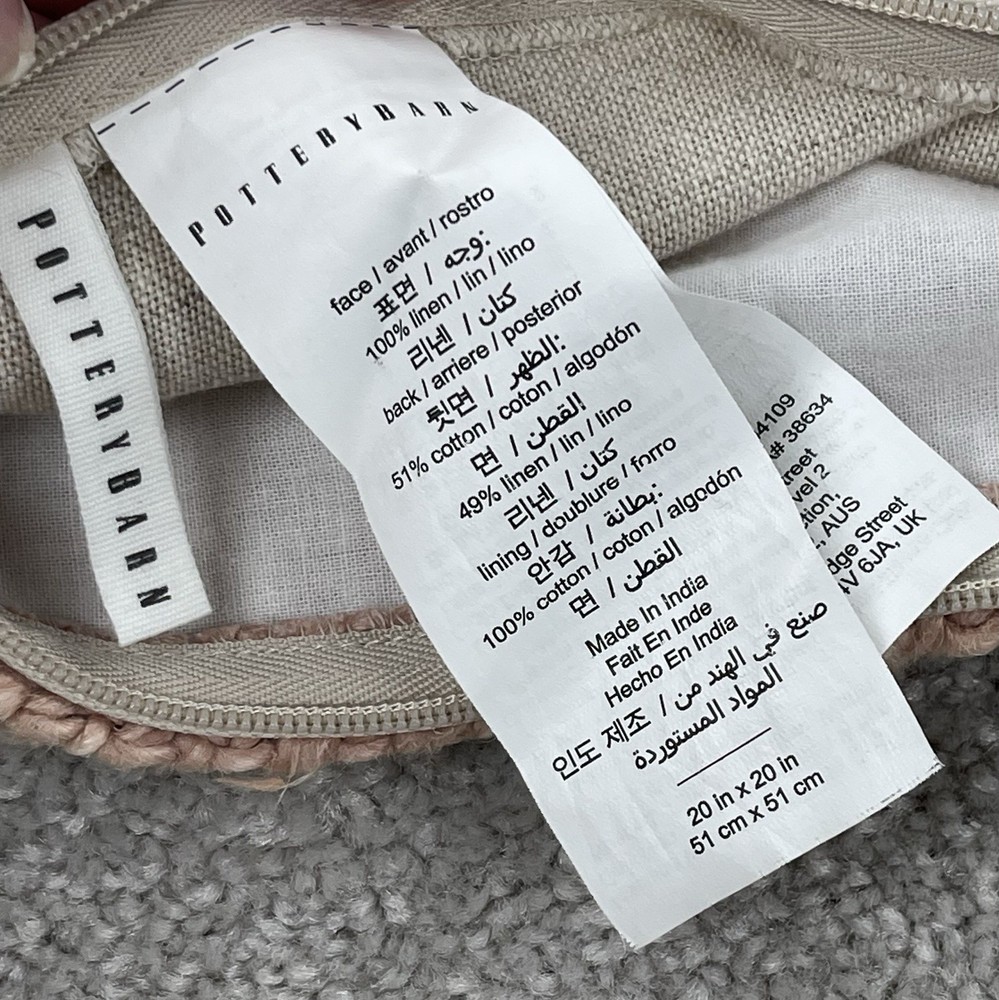 POTTERYBARN
POTTERYBARN
face / avant / rostro
표면 / وجه:
100% linen / lin / lino
리넨 / كتان
back / arriere / posterior
뒷면 / الظهر:
51% cotton / coton / algodón
면 / القطن!
49% linen / lin / lino
리넨 / كتان
lining / doublure / forro
안감 / بطانة:
100% cotton / coton / algodón
면 / القطن
Made In India
Fait En Inde
Hecho En India
인도 제조 / صنع في الهند من
المواد المستوردة
20 in x 20 in
51 cm x 51 cm
4109
# 38634
, AUS
Street
6JA, UK